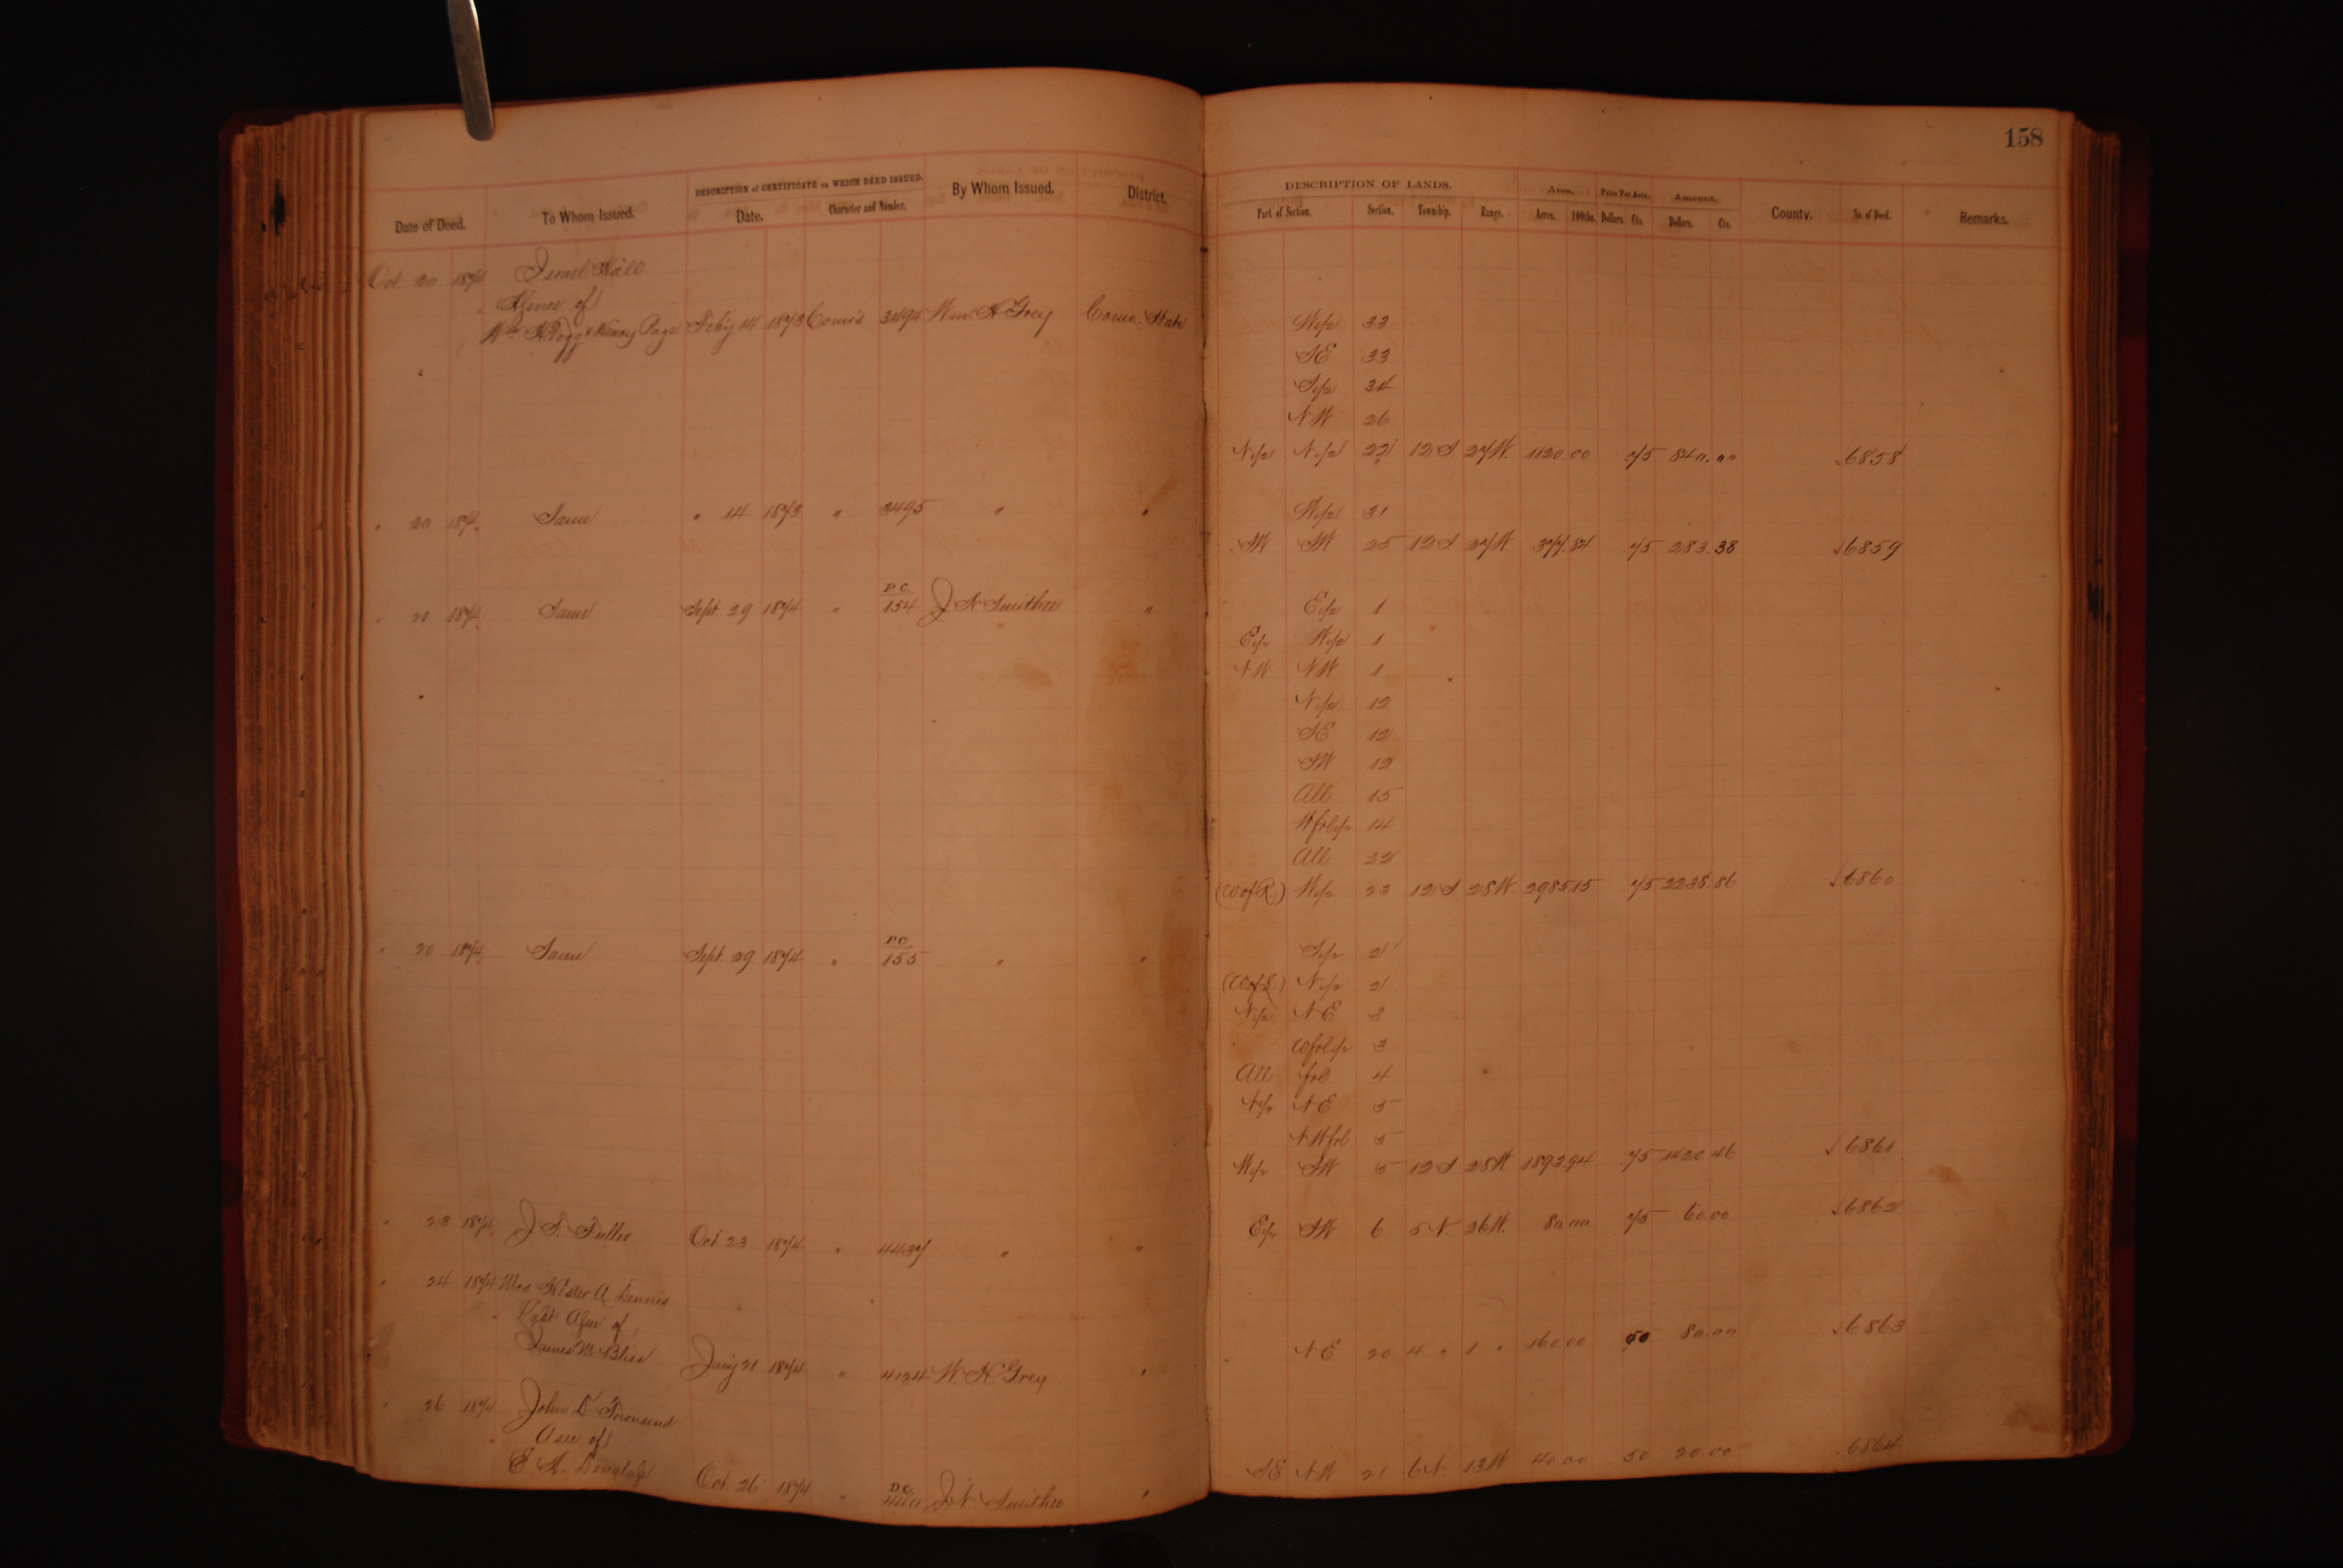 158
DESCRIPTION of CERTIFICATE on WHICH DEED ISSUED.
Date of Deed. To Whom Issued. Date. Character and Number. By Whom Issued. District.
DESCRIPTION OF LANDS. Area. Price Per Acre. Amount.
Part of Section. Section. Township. Range. Acres. 100ths. Dollars. Cts. Dollars. Cts. County. No. of Deed. Remarks.
Oct 20 1874 Israel Hall
Henry Page Feby 14 1873 Comrs 3494 Wm. H Grey Comr. State W 1/2 33
SE 33
S 1/2 34
NW 26
N 1/2 N 1/2 22 12 S 27 W. 1120.00 .75 840.00 6858
" 20 1874 Same " 14 1873 " 3495 " " W 1/2 31
SW SW 25 12 S 27 W. 377.84 .75 283.38 6859
" 20 1874 Same Sept 29 1874 " D.C. 154 J N Smithee " E 1/2 1
E 1/2 W 1/2 1
NW NW 1
N 1/2 12
SE 12
SW 12
All 15
W frl 1/2 14
All 22
(W of R) W 1/2 23 12 S 28 W. 2985 15 .75 2238.86 6860
" 20 1874 Same Sept. 29 1874 " D.C. 155 " " S 1/2 2
N 1/2 2
N 1/2 NE 3
W frl 1/2 3
All frl 4
N 1/2 NE 5
NW frl 5
W 1/2 SW 5 12 S 28 W 1893.94 .75 1420.46 6861
" 23 1874 J. F. Fuller Oct 23 1874 " 4437 " " E 1/2 SW 6 5 N 26 W. 80.00 .75 60.00 6862
" 24 1874 Mrs Hester A Dennis
James M Bliss Jany 21 1874 " 4124 W H Grey " NE 20 4 " 1 " 160.00 50 80.00 6863
" 26 1874 John D Townsend
Asee of
E A. Douglass Oct. 26 1874 " D.C. 440 J N Smithee " SE NW 21 6 N 13 W 40.00 50 20.00 6864